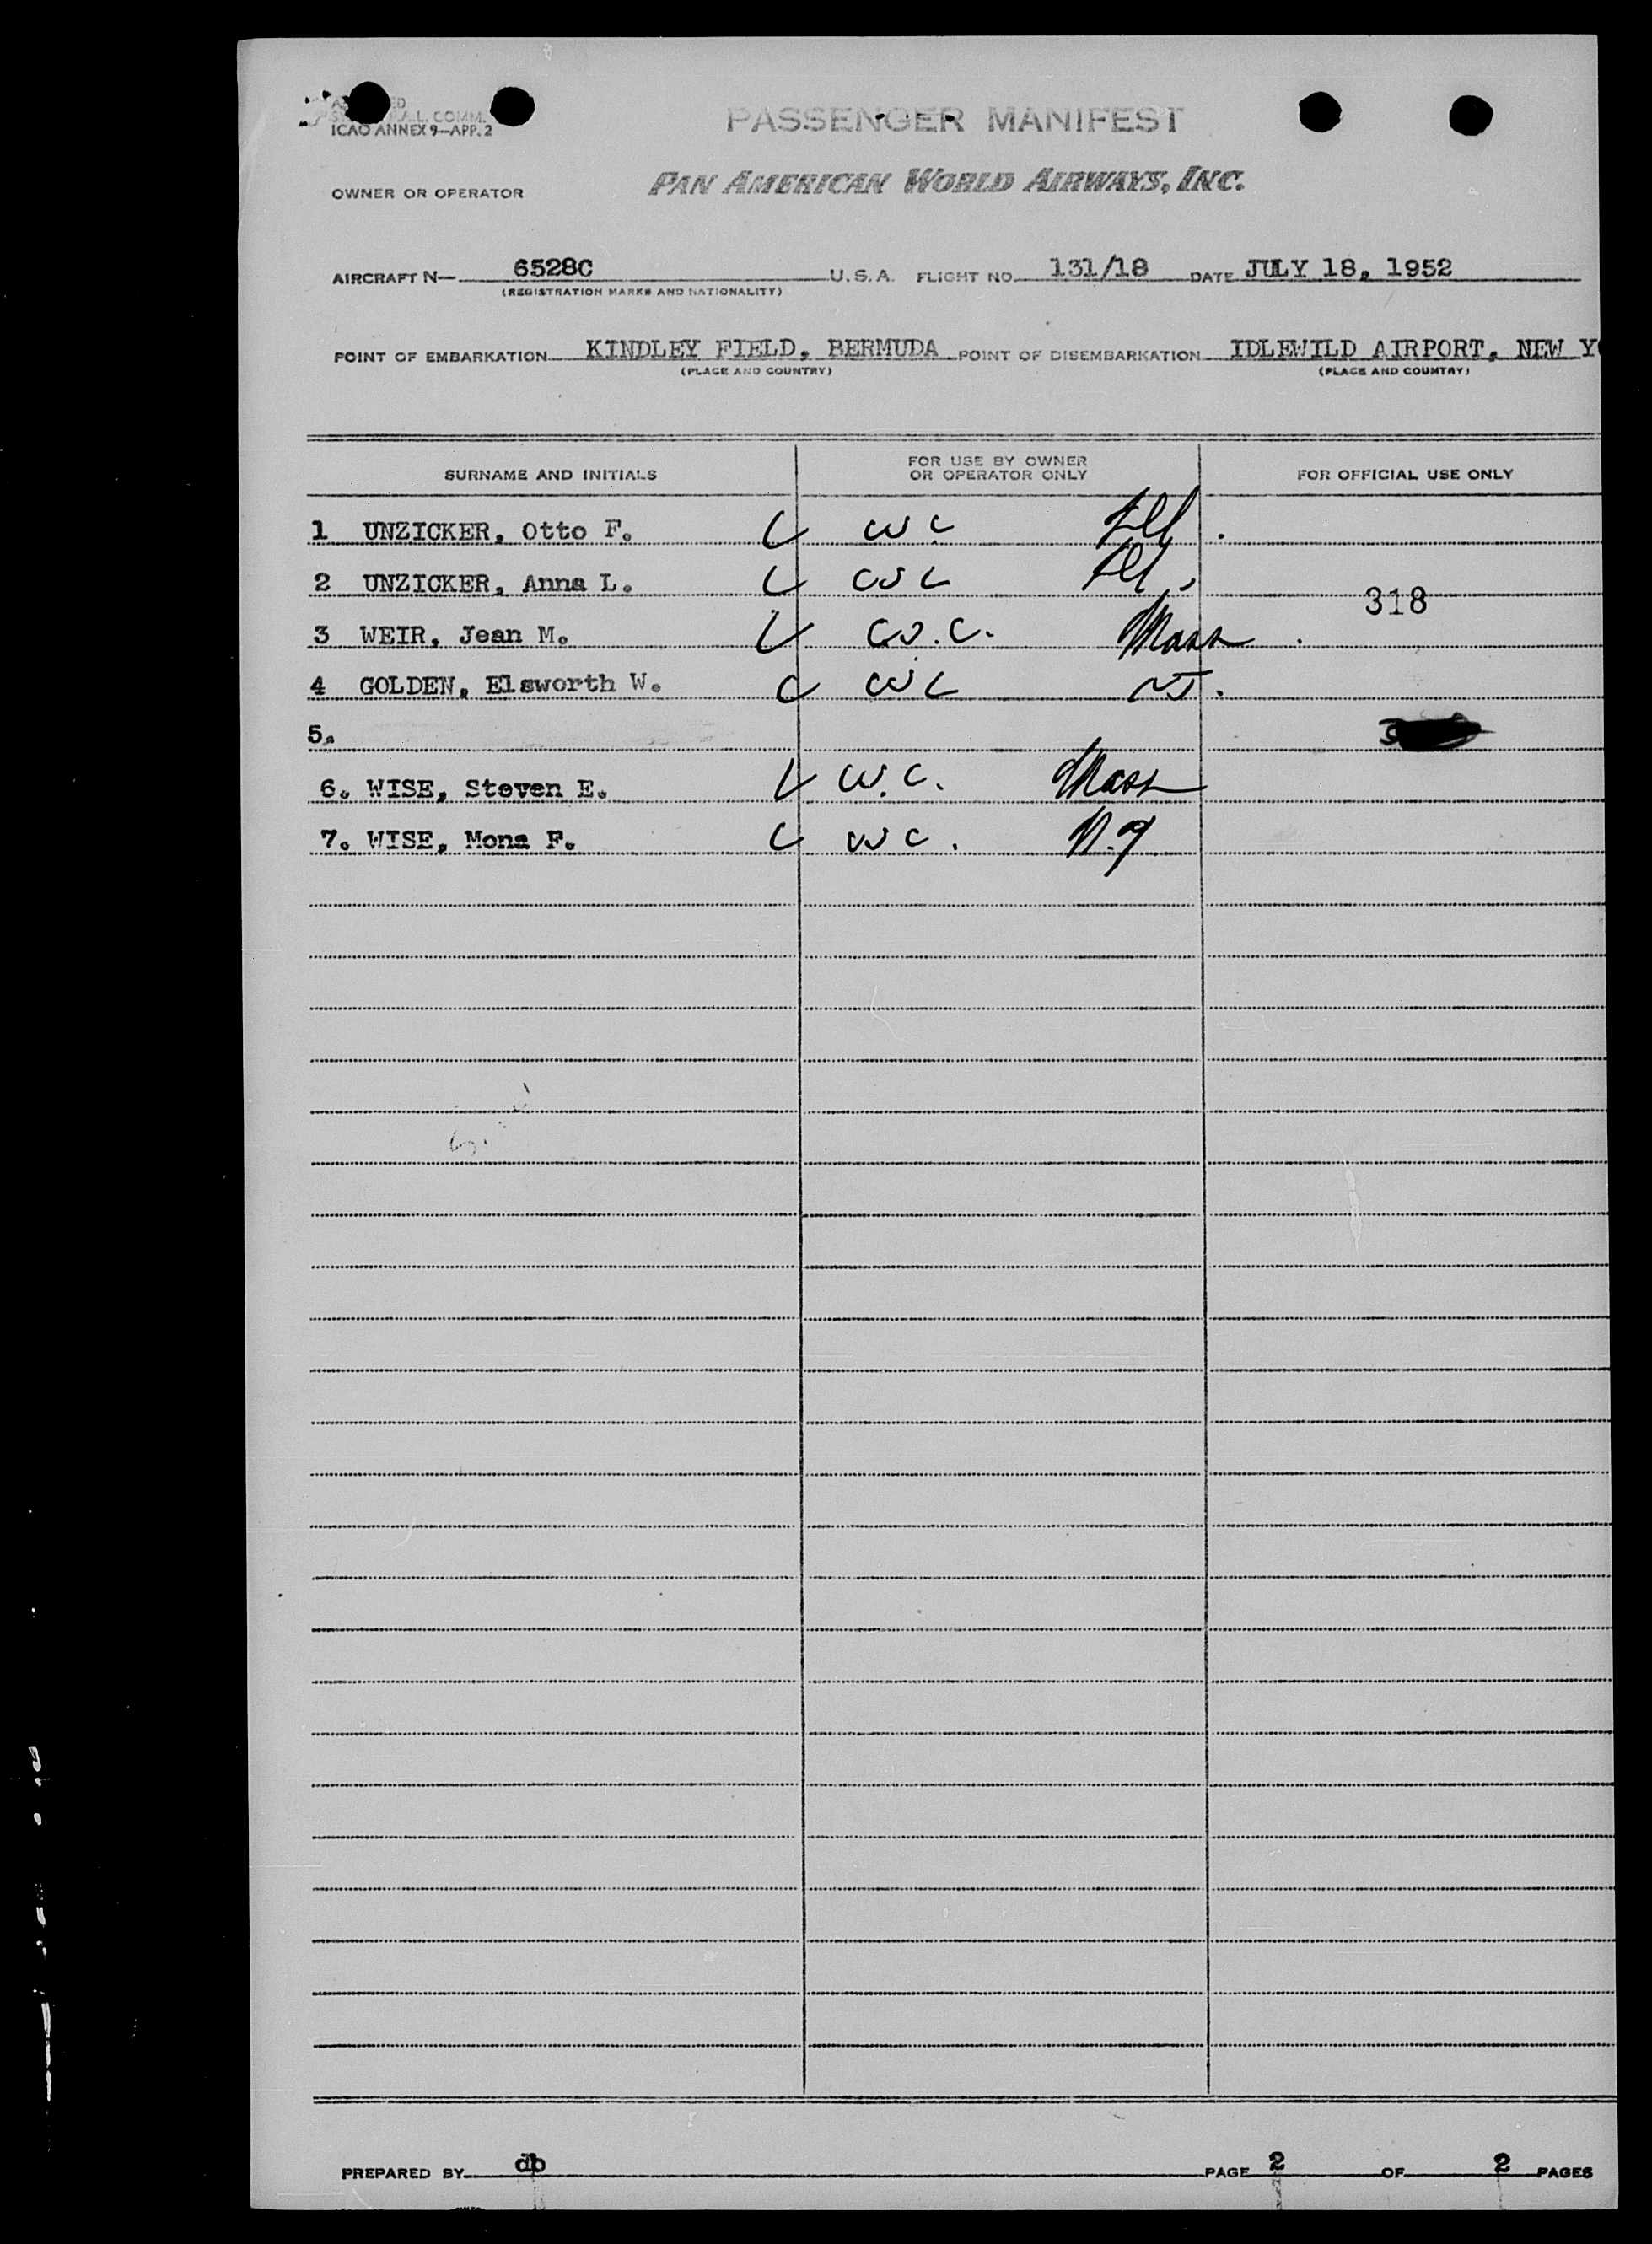 ICAO ANNEX 9—APP. 2
PASSENGER MANIFEST
OWNER OR OPERATOR PAN AMERICAN WORLD AIRWAYS, INC.
AIRCRAFT N— 6528C U.S.A. FLIGHT NO. 131/18 DATE JULY 18, 1952
(REGISTRATION MARKS AND NATIONALITY)
POINT OF EMBARKATION KINDLEY FIELD, BERMUDA POINT OF DISEMBARKATION IDLEWILD AIRPORT, NEW Y
(PLACE AND COUNTRY) (PLACE AND COUNTRY)
SURNAME AND INITIALS FOR USE BY OWNER OR OPERATOR ONLY FOR OFFICIAL USE ONLY
1 UNZICKER, Otto F. W C Ill.
2 UNZICKER, Anna L. W C Ill.
318
3 WEIR, Jean M. W.C. Mass.
4 GOLDEN, Elsworth W. W C NJ.
5.
6. WISE, Steven E. W.C. Mass
7. WISE, Mona F. W C. N.Y
PREPARED BY db PAGE 2 OF 2 PAGES